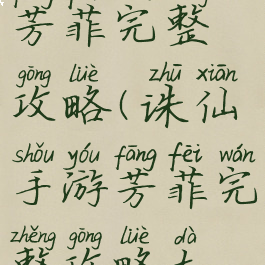 芳菲完整
gōng lüè zhū xiān
攻略(诛仙
shǒu yóu fāng fēi wán
手游芳菲完
zhěng gōng lüè dà
整攻略大